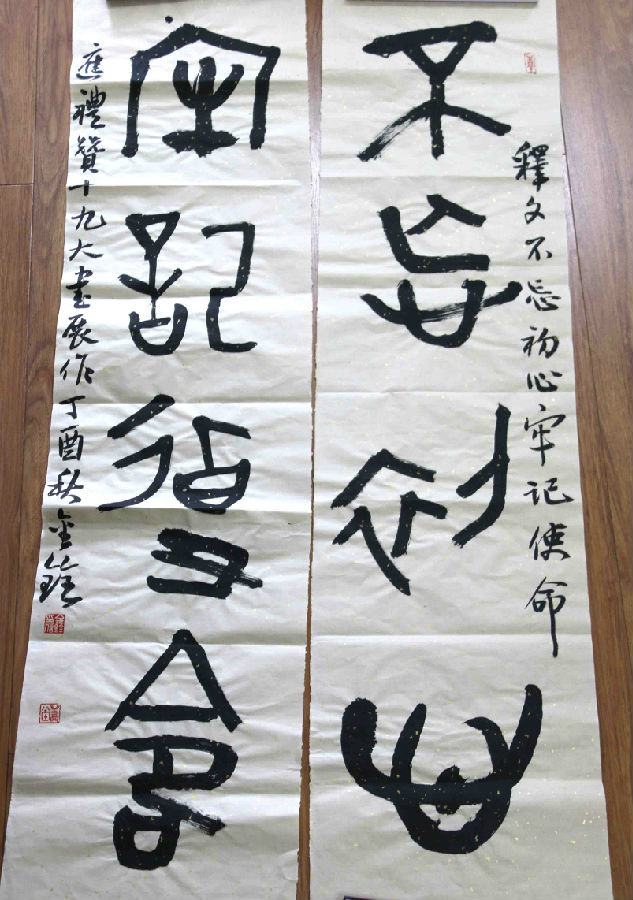 不忘初心
釋文不忘初心牢记使命
牢記使命
應禮贊十九大書展作丁酉秋